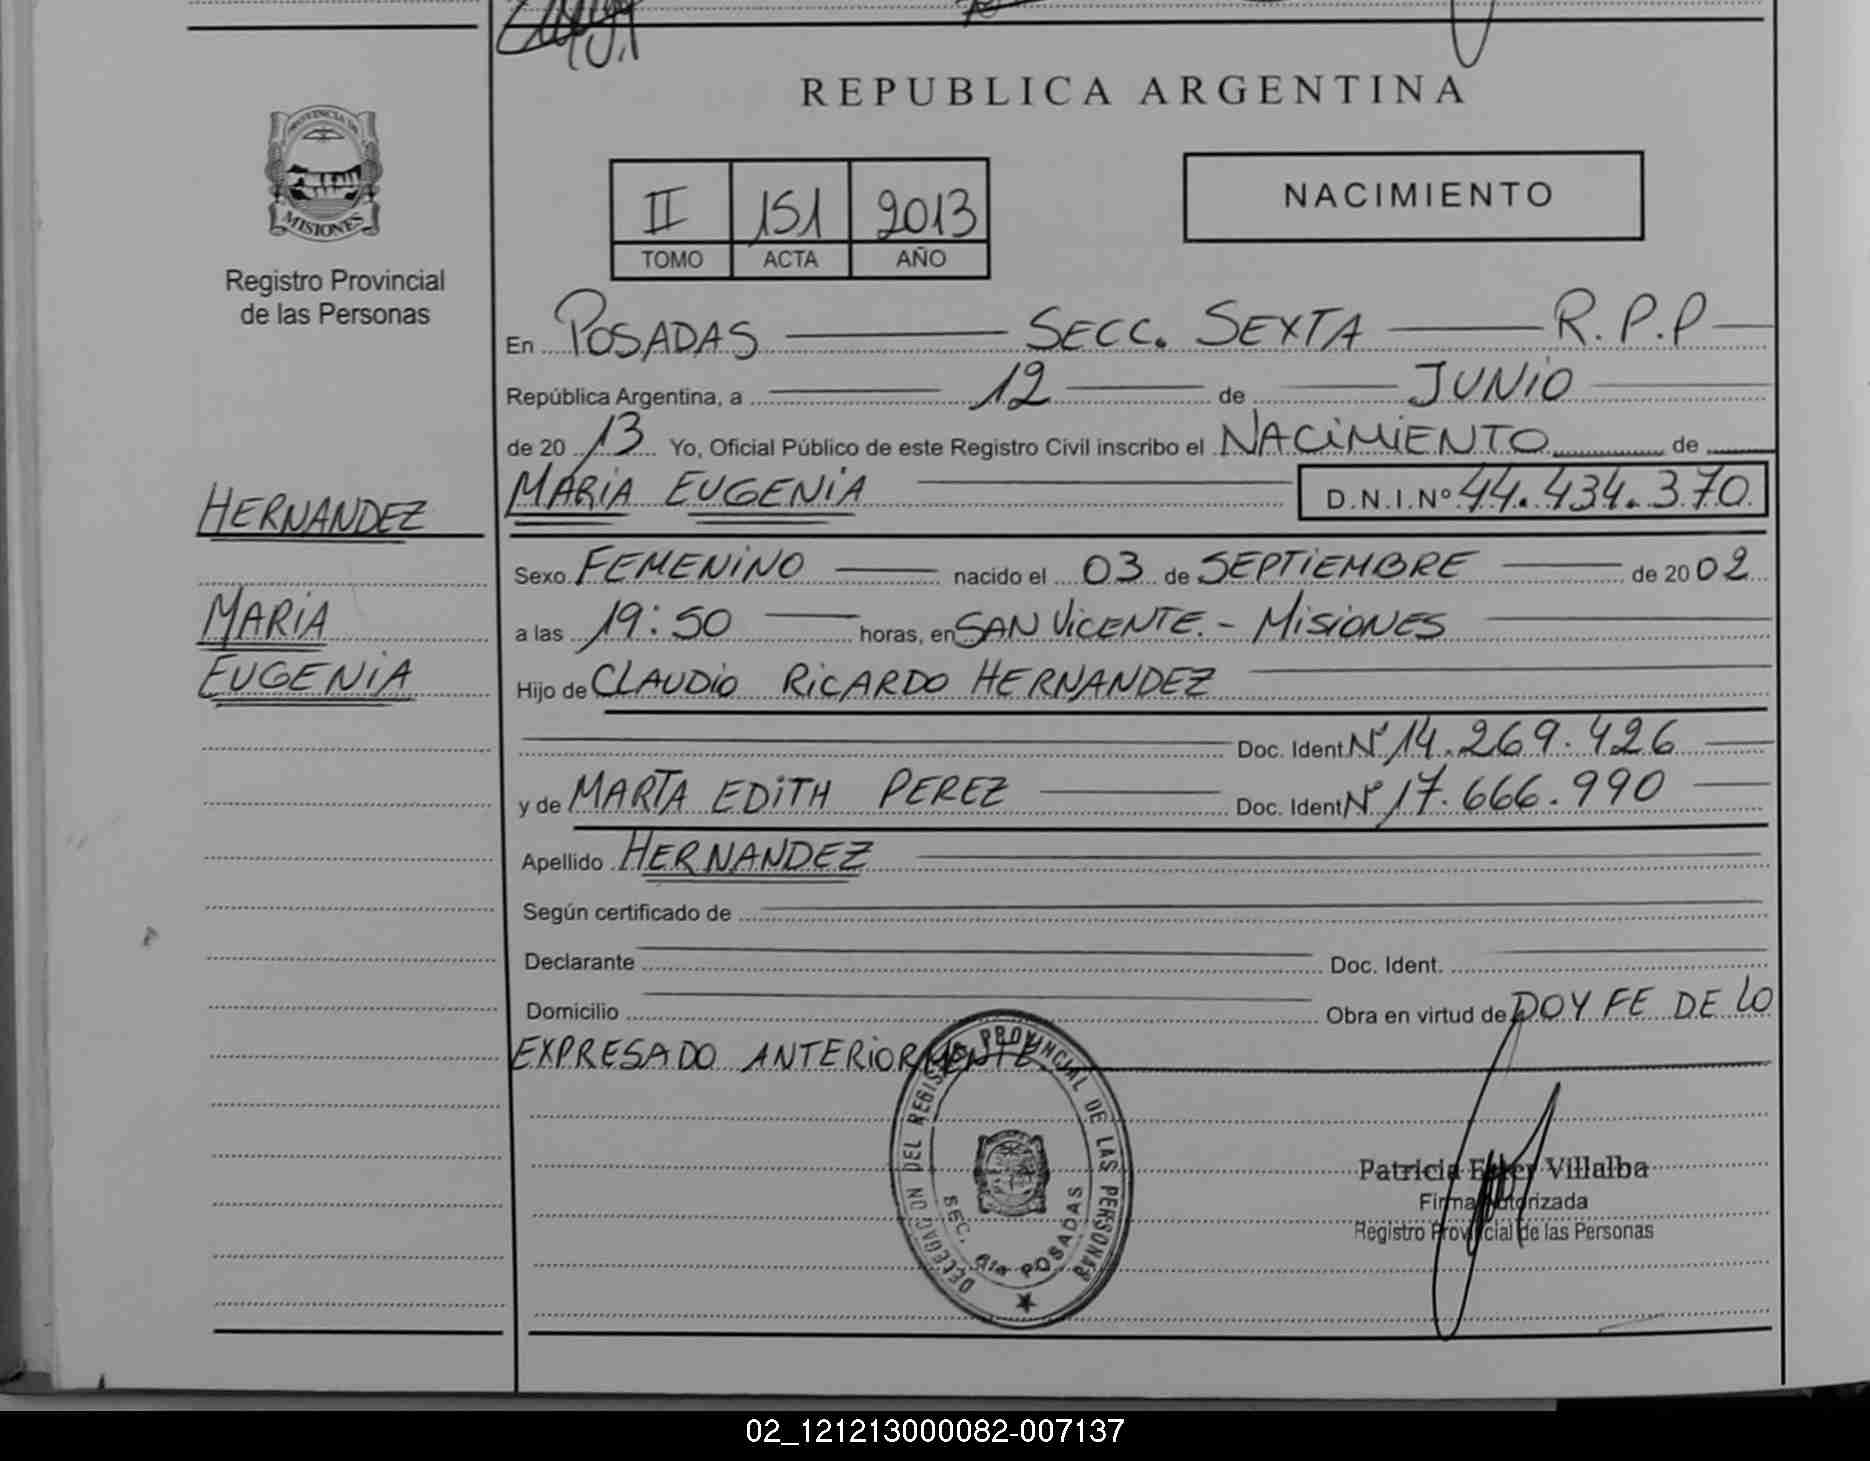 REPUBLICA ARGENTINA
PROVINCIA DE
MISIONES
Registro Provincial
de las Personas
II 151 2013
TOMO ACTA AÑO
NACIMIENTO
En POSADAS SECC. SEXTA R.P.P
República Argentina, a 12 de JUNIO
de 20 13 Yo, Oficial Público de este Registro Civil inscribo el NACIMIENTO de
MARIA EUGENIA D.N.I.Nº 44.434.370
HERNANDEZ
MARIA
EUGENIA
Sexo FEMENINO nacido el 03 de SEPTIEMBRE de 20 02
a las 19:50 horas, en SAN VICENTE.- MISIONES
Hijo de CLAUDIO RICARDO HERNANDEZ
Doc. Ident Nº 14.269.426
y de MARTA EDITH PEREZ Doc. Ident Nº 17.666.990
Apellido HERNANDEZ
Según certificado de
Declarante Doc. Ident.
Domicilio Obra en virtud de DOY FE DE LO
EXPRESADO ANTERIORMENTE
DELEGACION DEL REGISTRO PROVINCIAL DE LAS PERSONAS
SEC. 6ta POSADAS
Patricia Ester Villalba
Firma Autorizada
Registro Provincial de las Personas
02_121213000082-007137